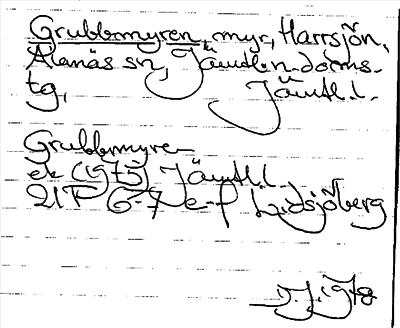 Grubbmyren, myr, Harrsjön,
Alanäs sn, Jämtl.n.doms-
tg, Jämtl.l.
Grubbmyren
ek (1975) Jämtl.l.
21F 6-7 e-f Lidsjöberg
1978